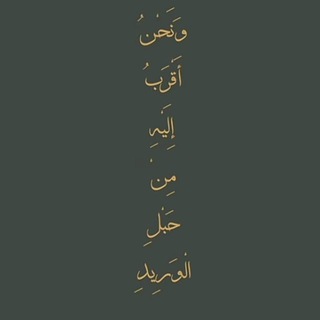 وَنَحْنُ
أَقْرَبُ
إِلَيْهِ
مِنْ
حَبْلِ
الْوَرِيدِ